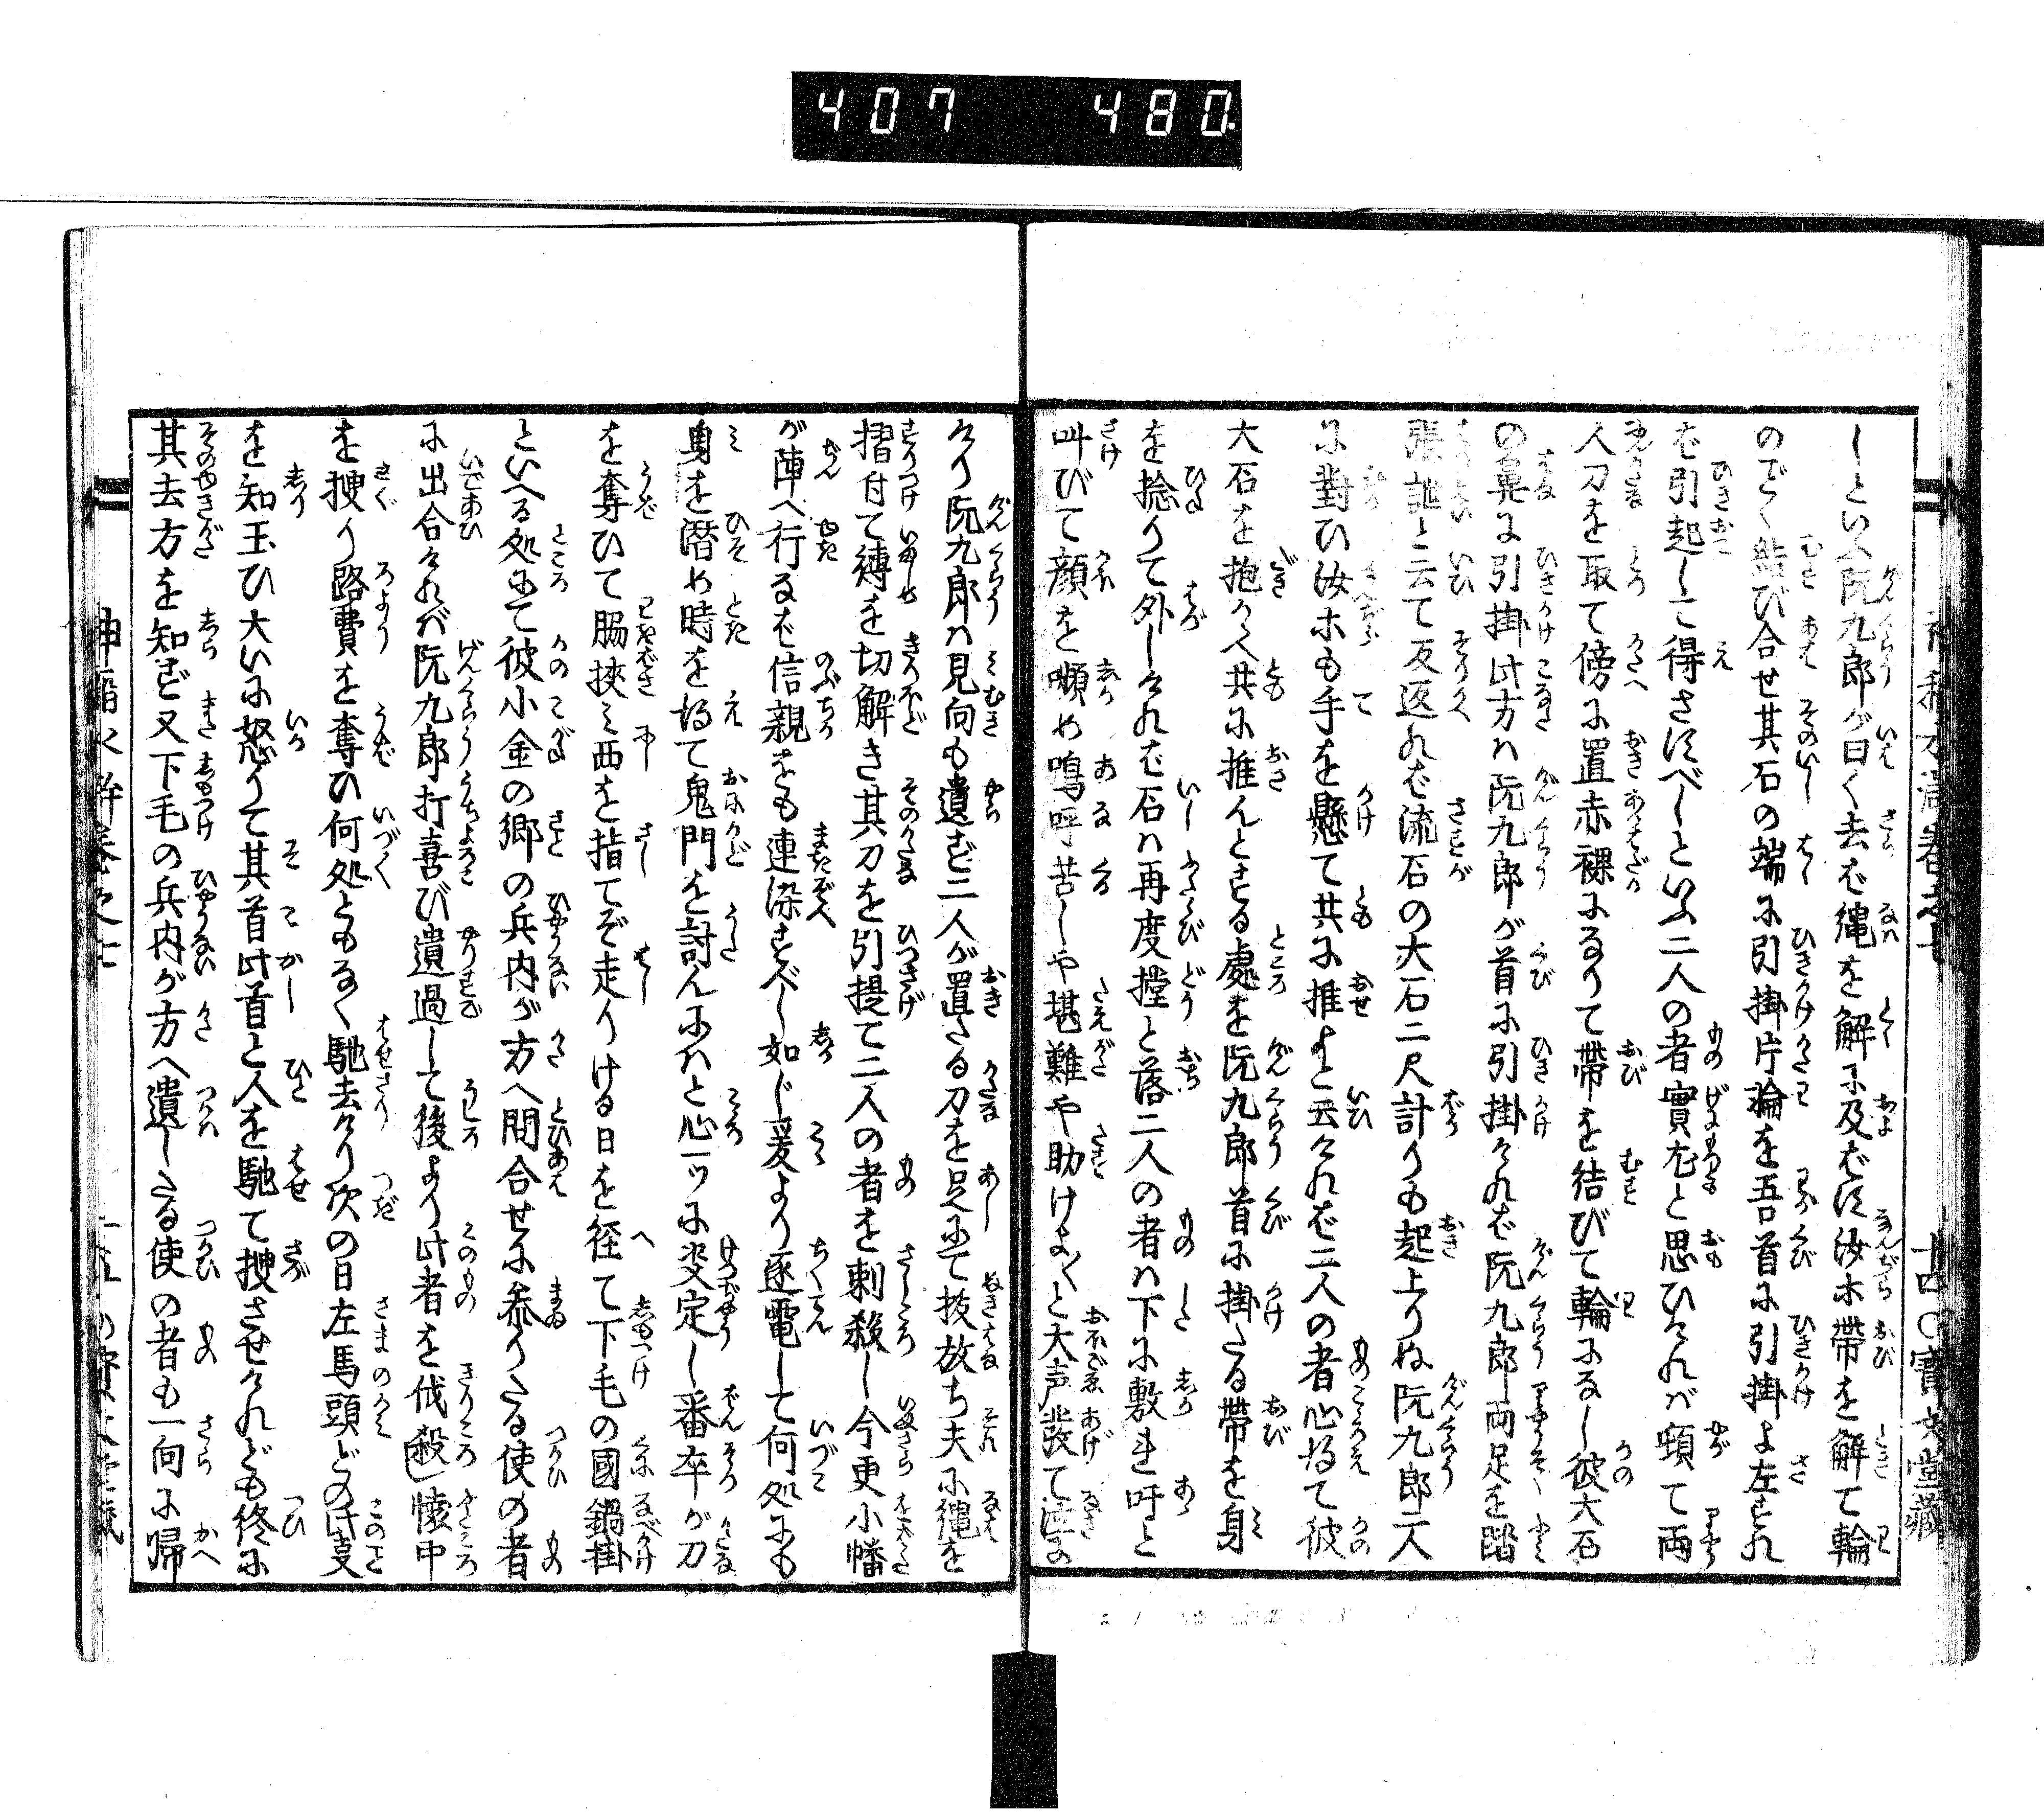 407 480
しといふ阮九郎が曰く去ば縄を解に及ばず汝ホ帯を解て輪
のごく結び合せ其石の端に引掛片輪を吾首に引掛よ左すれ
ば引起して得さすべしといふ二人の者實尤と思ひければ頓て両
人刀を取て傍に置赤裸になりて帯を結びて輪になし彼大石
の鼻に引掛此方ハ阮九郎が首に引掛ければ阮九郎両足を踏
張曳と云て反返れば流石の大石二尺計りも起上りぬ阮九郎二人
に對ひ汝ホも手を懸て共に推よと云ければ二人の者心得て彼
大石を抱かへ共に推んとする處を阮九郎首に掛たる帯を身
を捻りて外しければ石ハ再度撞と落二人の者ハ下に敷れ吁と
叫びて顔を顰め嗚呼苦しや堪難や助けよ〱と大声発て泣
けり阮九郎ハ見向も遣ず二人が置たる刀を足にて抜放ち夫に縄を
摺付て縛を切解き其刀を引提て二人の者を刺殺し今更小幡
が陣へ行るば信親をも連染すべし如じ爰より逐電して何処にも
身を潜め時を得て鬼門を討んにハと心一ツに决定し番卒が刀
を奪ひて脇挾ミ西を指てぞ走りける日を径て下毛の國鍋掛
といへる処にて彼小金の郷の兵内が方へ問合せに参りたる使の者
に出合ければ阮九郎打喜び遺過して後より此者を伐殺し懐中
を捜り路費を奪ひ何処ともなく馳去けり次の日左馬頭どの此㕝
を知玉ひ大いに怒りて其首此首と人を馳て捜させけれども終に
其去方を知ず又下毛の兵内が方へ遣したる使の者も一向に帰